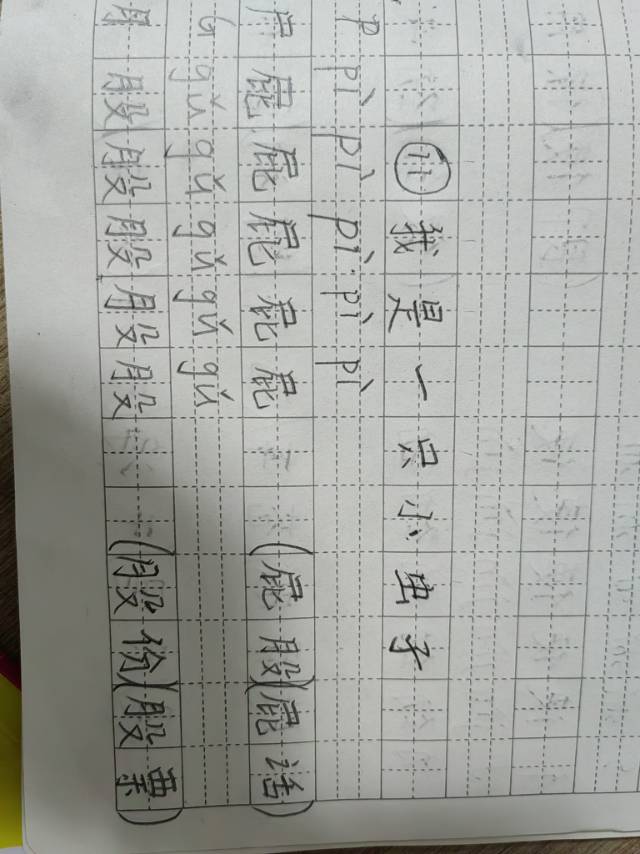 ⑪我是一只小虫子
P pì pì pì pì pì
尸 屁 屁 屁 屁 屁 (屁股)(屁话)
G gǔ gǔ gǔ gǔ gǔ
月 股 股 股 股 股 (股份)(股票)